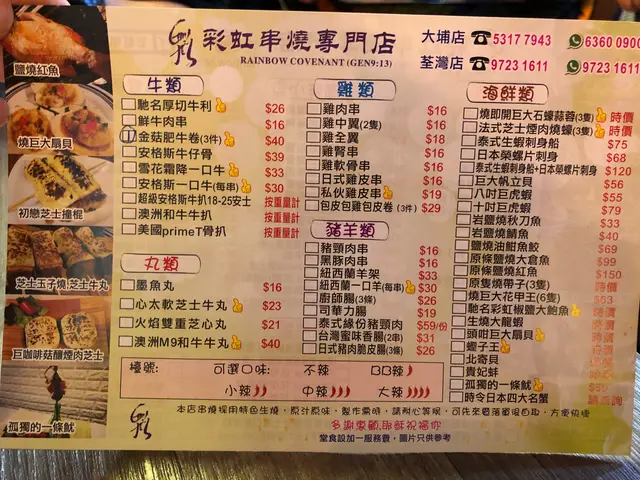 彩 彩虹串燒專門店
RAINBOW COVENANT (GEN9:13)
大埔店 5317 7943 6360 090
荃灣店 9723 1611 9723 1611
鹽燒紅魚
燒巨大扇貝
初戀芝士撞棍
芝士玉子燒 芝士牛丸
巨咖啡菇釀煙肉芝士
孤獨的一條魷
牛類
馳名厚切牛利 $26
鮮牛肉串 $16
金菇肥牛卷(3件) $40
安格斯牛仔骨 $39
雪花霜降一口牛 $33
安格斯一口牛(每串) $30
超級安格斯牛扒18-25安士 按重量計
澳洲和牛牛扒 按重量計
美國primeT骨扒 按重量計
丸類
墨魚丸 $16
心太軟芝士牛丸 $23
火焰雙重芝心丸 $21
澳洲M9和牛牛丸 $40
雞類
雞肉串 $16
雞中翼(2隻) $16
雞全翼 $18
雞腎串 $16
雞軟骨串 $16
日式雞串 $16
私伙雞皮串 $19
包皮包雞包皮卷(3件) $29
豬羊類
豬頸肉串 $16
黑豚肉串 $16
紐西蘭羊架 $33
紐西蘭一口羊(每串) $30
廚師腸(3條) $26
司華力腸 $19
泰式緣份豬頸肉 $59/份
台灣蜜味香腸(2串) $31
日式豬肉脆皮腸(3條) $26
海鮮類
燒即開巨大石蠔蒜蓉(3隻) 時價
法式芝士煙肉燒蠔(3隻) 時價
泰式生蝦刺身船 $75
日本榮螺片刺身 $68
泰式生蝦刺身船+日本榮螺片刺身 $120
巨大帆立貝 $56
八吋巨虎蝦 $55
十吋巨虎蝦 $79
岩鹽燒秋刀魚 $33
岩鹽燒鯖魚 $40
鹽燒油甘魚鮫 $69
原條鹽燒大倉魚 $99
原條鹽燒紅魚 $150
原隻燒帶子(3隻) 時價
燒巨大花甲王(6隻) $53
馳名彩虹椒鹽大鮑魚 時價
生燒大龍蝦 時價
頭咁巨大扇貝 時價
蟶子王
北寄貝
貴妃蚌
孤獨的一條魷
時令日本四大名蟹
檯號: 可選口味: 不辣 BB辣
小辣 中辣 大辣
彩 本店串燒採用特色生燒，原汁原味，製作需時，請耐心等候
多謝惠顧,耶穌祝福你
堂食設加一服務費，圖片只供參考